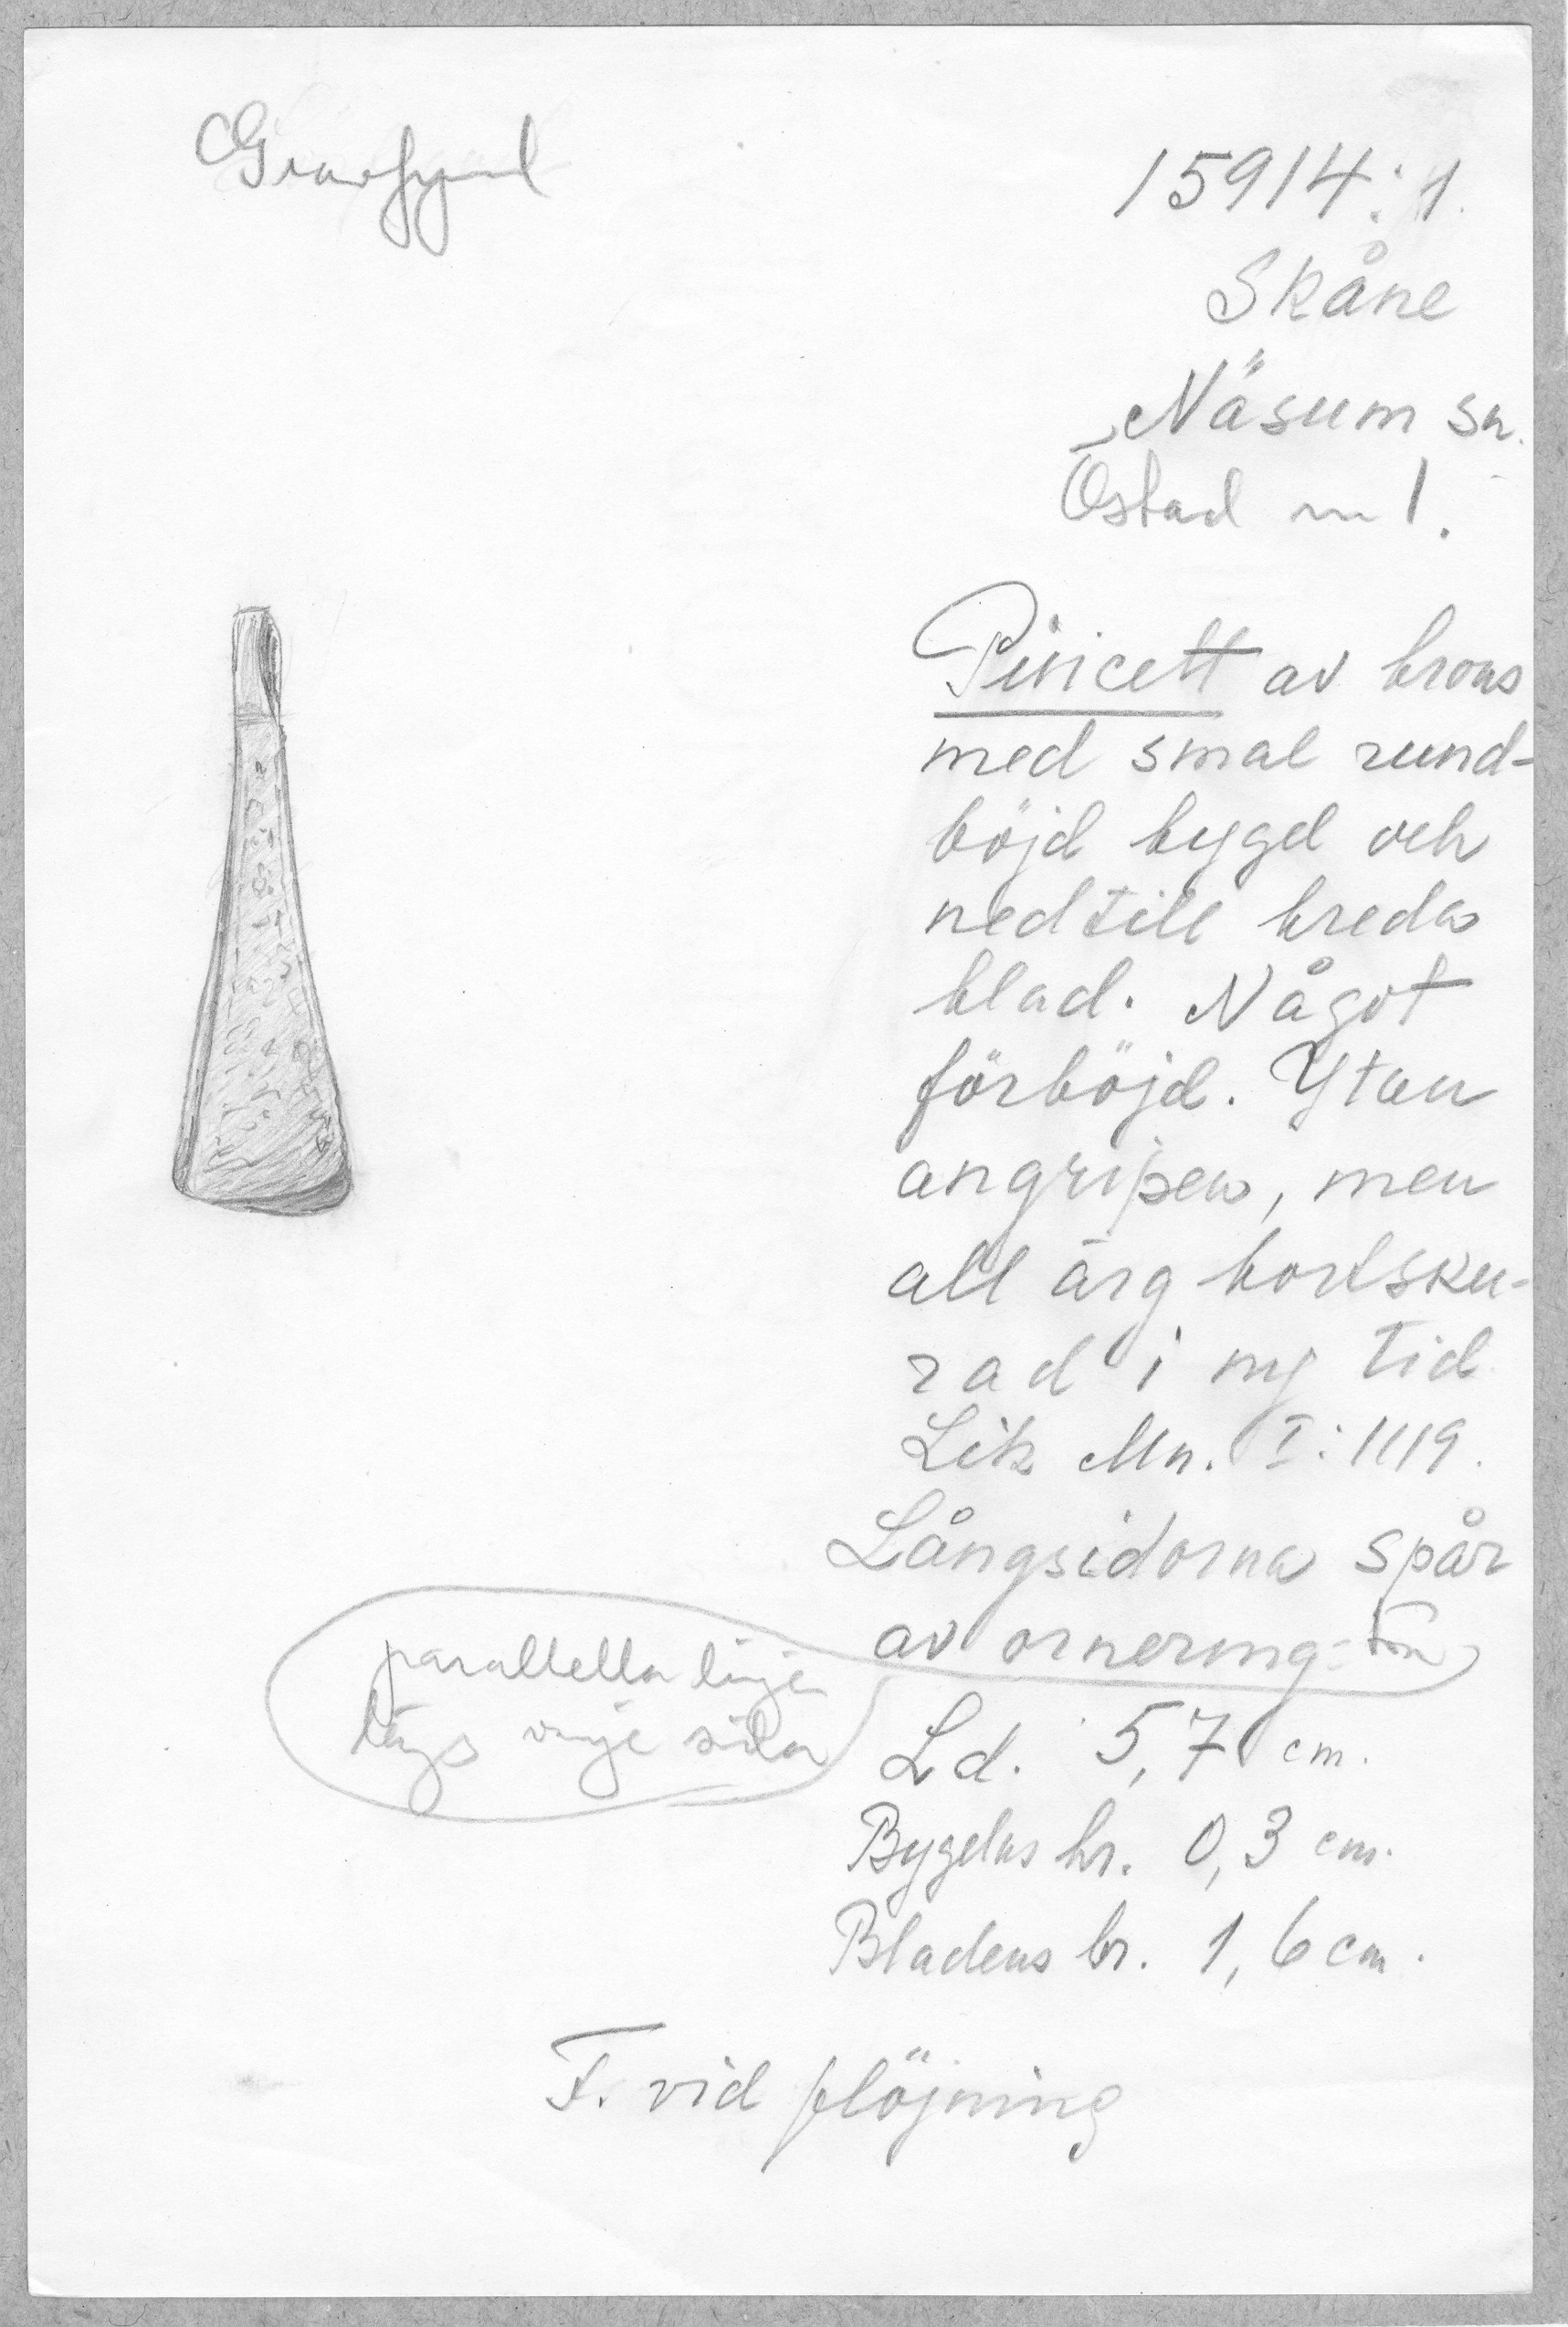 Gravfynd
15914:1.
Skåne
Näsum sn.
Östad nr 1.
Pincett av brons
med smal rund-
böjd bygel och
nedtill breda
blad. Något
förböjd. Ytan
angripen, men
all ärg bortsku-
rad i ny tid
Lik Mn. I:1119.
Långsidorna spår
av ornering:
parallella linjer
längs varje sida
Ld. 5,7 cm.
Bygelns br. 0,3 cm.
Bladens br. 1,6 cm.
F. vid plöjning